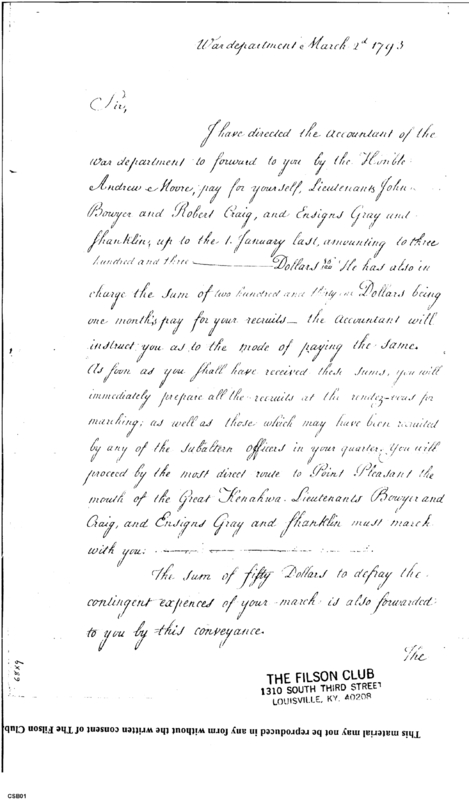 War department March 2d 1793
Sir,
I have directed the Accountant of the
War department to forward to you by the Honble
Andrew Moore, pay for yourself, Lieutenants John
Bowyer and Robert Craig, and Ensigns Gray and
Shanklin, up to the 1. January last, amounting to three
hundred and three Dollars He has also in
charge the sum of two hundred and thirty Dollars being
one month's pay for your recruits — the Accountant will
instruct you as to the mode of paying the same.
As soon as you shall have received these sums, you will
immediately prepare all the recruits at the rendez-vous for
marching; as well as those which may have been recruited
by any of the subaltern officers in your quarter. You will
proceed by the most direct route to Point Pleasant the
mouth of the Great Kenahwa. Lieutenants Bowyer and
Craig, and Ensigns Gray and Shanklin must march
with you.
The sum of fifty Dollars to defray the
contingent expences of your march is also forwarded
to you by this conveyance.
The
THE FILSON CLUB
1310 SOUTH THIRD STREET
LOUISVILLE, KY. 40208
This material may not be reproduced in any form without the written consent of The Filson Club.
CSB01